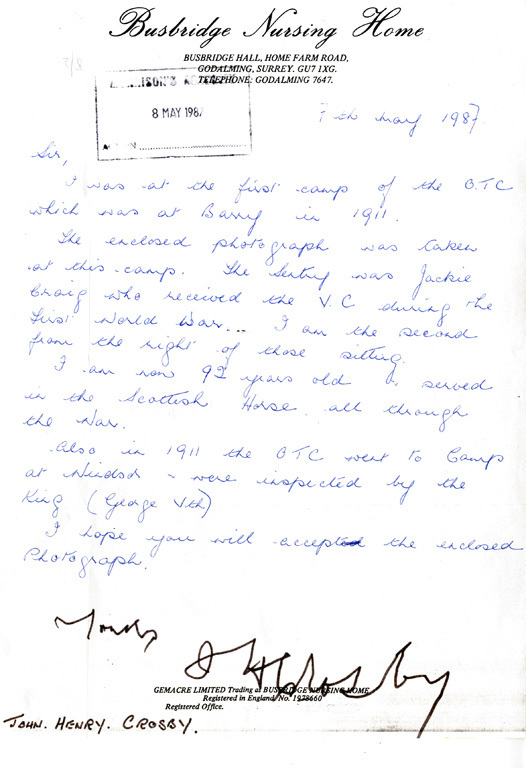 Busbridge Nursing Home
BUSBRIDGE HALL, HOME FARM ROAD,
GODALMING, SURREY. GU7 1XG.
TELEPHONE: GODALMING 7647.
8 MAY 1987
7th May 1987.
Sir,
I was at the first camp of the OTC
which was at Barry in 1911.
The enclosed photograph was taken
at this camp. The Sentry was Jackie
Craig who received the V.C during the
First World War... I am the second
from the right of those sitting.
I am now 92 years old & served
in the Scottish Horse all through
the War.
Also in 1911 the OTC went to Camp
at Windsor - were inspected by the
King (George Vth)
I hope you will accept the enclosed
Photograph.
Yours
J H Crosby
GEMACRE LIMITED Trading as BUSBRIDGE NURSING HOME
Registered in England No. 1978660
Registered Office.
JOHN. HENRY. CROSBY.